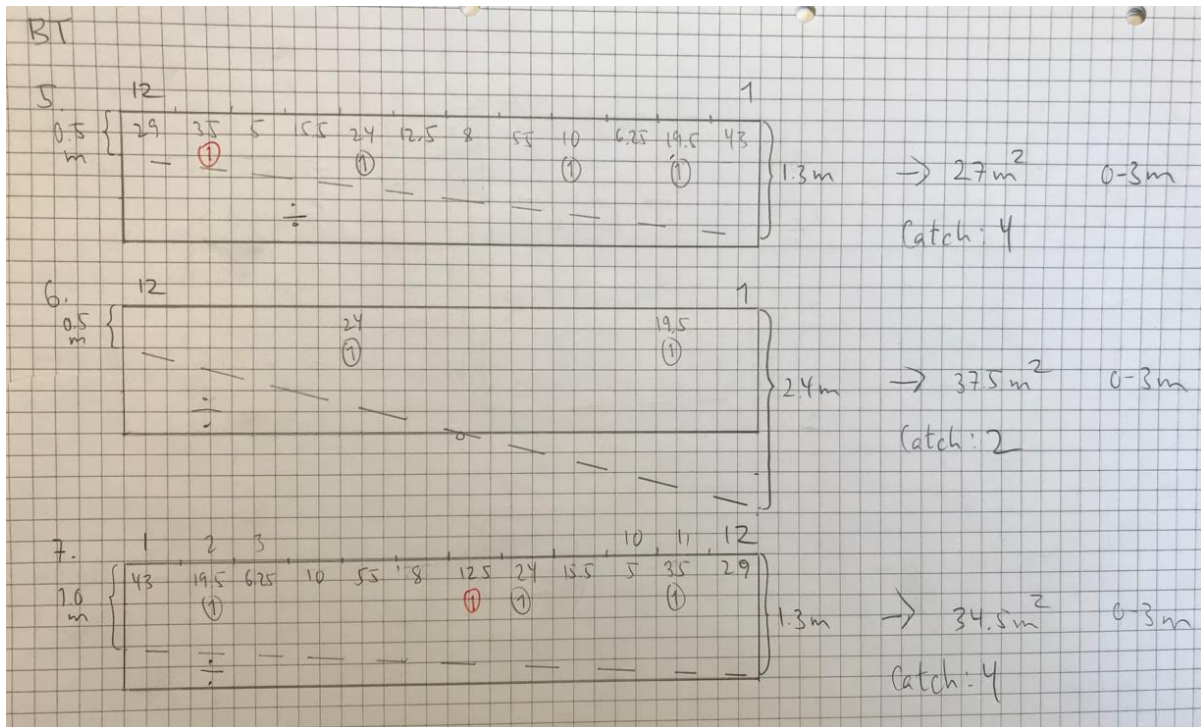 BT
5. 12 1
0.5 m 29 35 5 15.5 24 12.5 8 55 10 6.25 19.5 43
① ① ① ①
÷
1.3m → 27m² 0-3m
Catch: 4
6. 12 1
0.5 m 24 19.5
① ①
÷
2.4m → 37.5m² 0-3m
Catch: 2
7. 1 2 3 10 11 12
1.0 m 43 19.5 6.25 10 55 8 12.5 24 15.5 5 35 29
① ① ① ①
÷
1.3m → 34.5m² 0-3m
Catch: 4